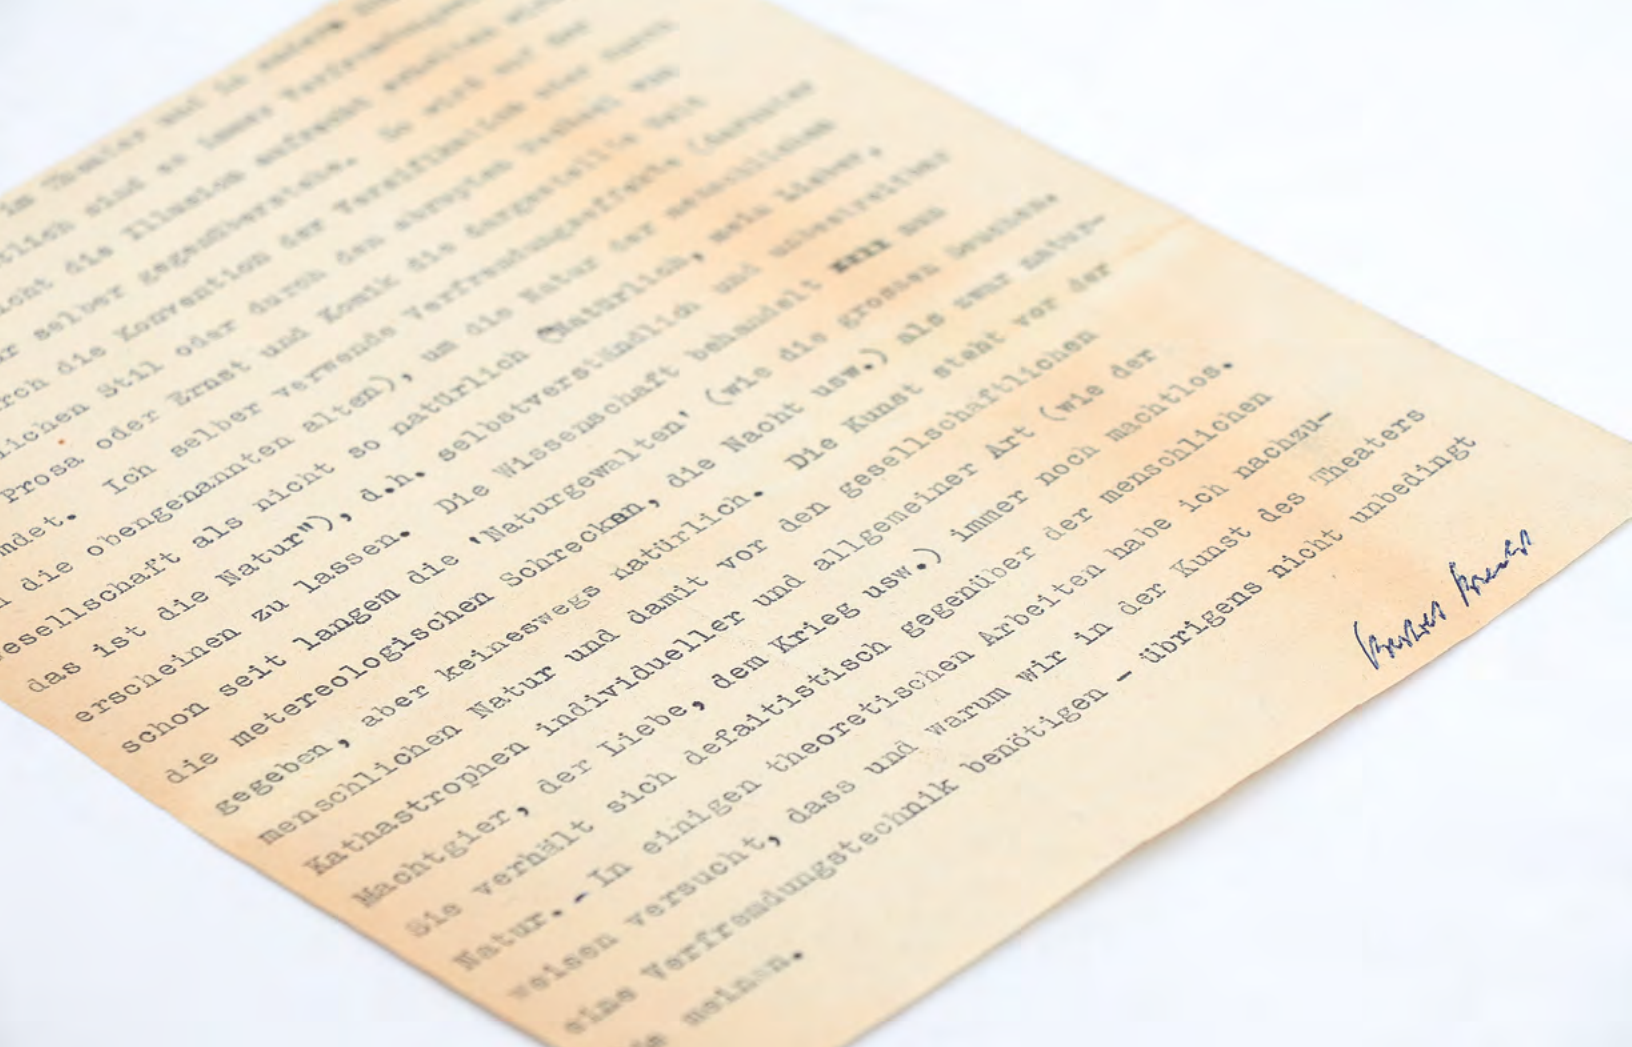 im Theater und in
tlich sind es immer
icht die Illusion aufrecht erhalten
r selber gegenüberstehe. So wird auf der
rch die Konvention der Versifikation oder durch
lichen Stil oder durch den abrupten Wechsel von
Prosa oder Ernst und Komik die dargestellte Welt
ndet. Ich selber verwende Verfremdungseffekte (darunter
die obengenannten alten), um die Natur der menschlichen
esellschaft als nicht so natürlich ("Natürlich, mein Lieber,
das ist die Natur"), d.h. selbstverständlich und unbestreitbar
erscheinen zu lassen. Die Wissenschaft behandelt xxxx nun
schon seit langem die 'Naturgewalten' (wie die grossen Seuchen,
die metereologischen Schrecken, die Nacht usw.) als zwar natur-
gegeben, aber keineswegs natürlich. Die Kunst steht vor der
menschlichen Natur und damit vor den gesellschaftlichen
Kathastrophen individueller und allgemeiner Art (wie der
Machtgier, der Liebe, dem Krieg usw.) immer noch machtlos.
Sie verhält sich defaitistisch gegenüber der menschlichen
Natur. - In einigen theoretischen Arbeiten habe ich nachzu-
weisen versucht, dass und warum wir in der Kunst des Theaters
eine Verfremdungstechnik benötigen - übrigens nicht unbedingt
meinen.
Bertolt Brecht